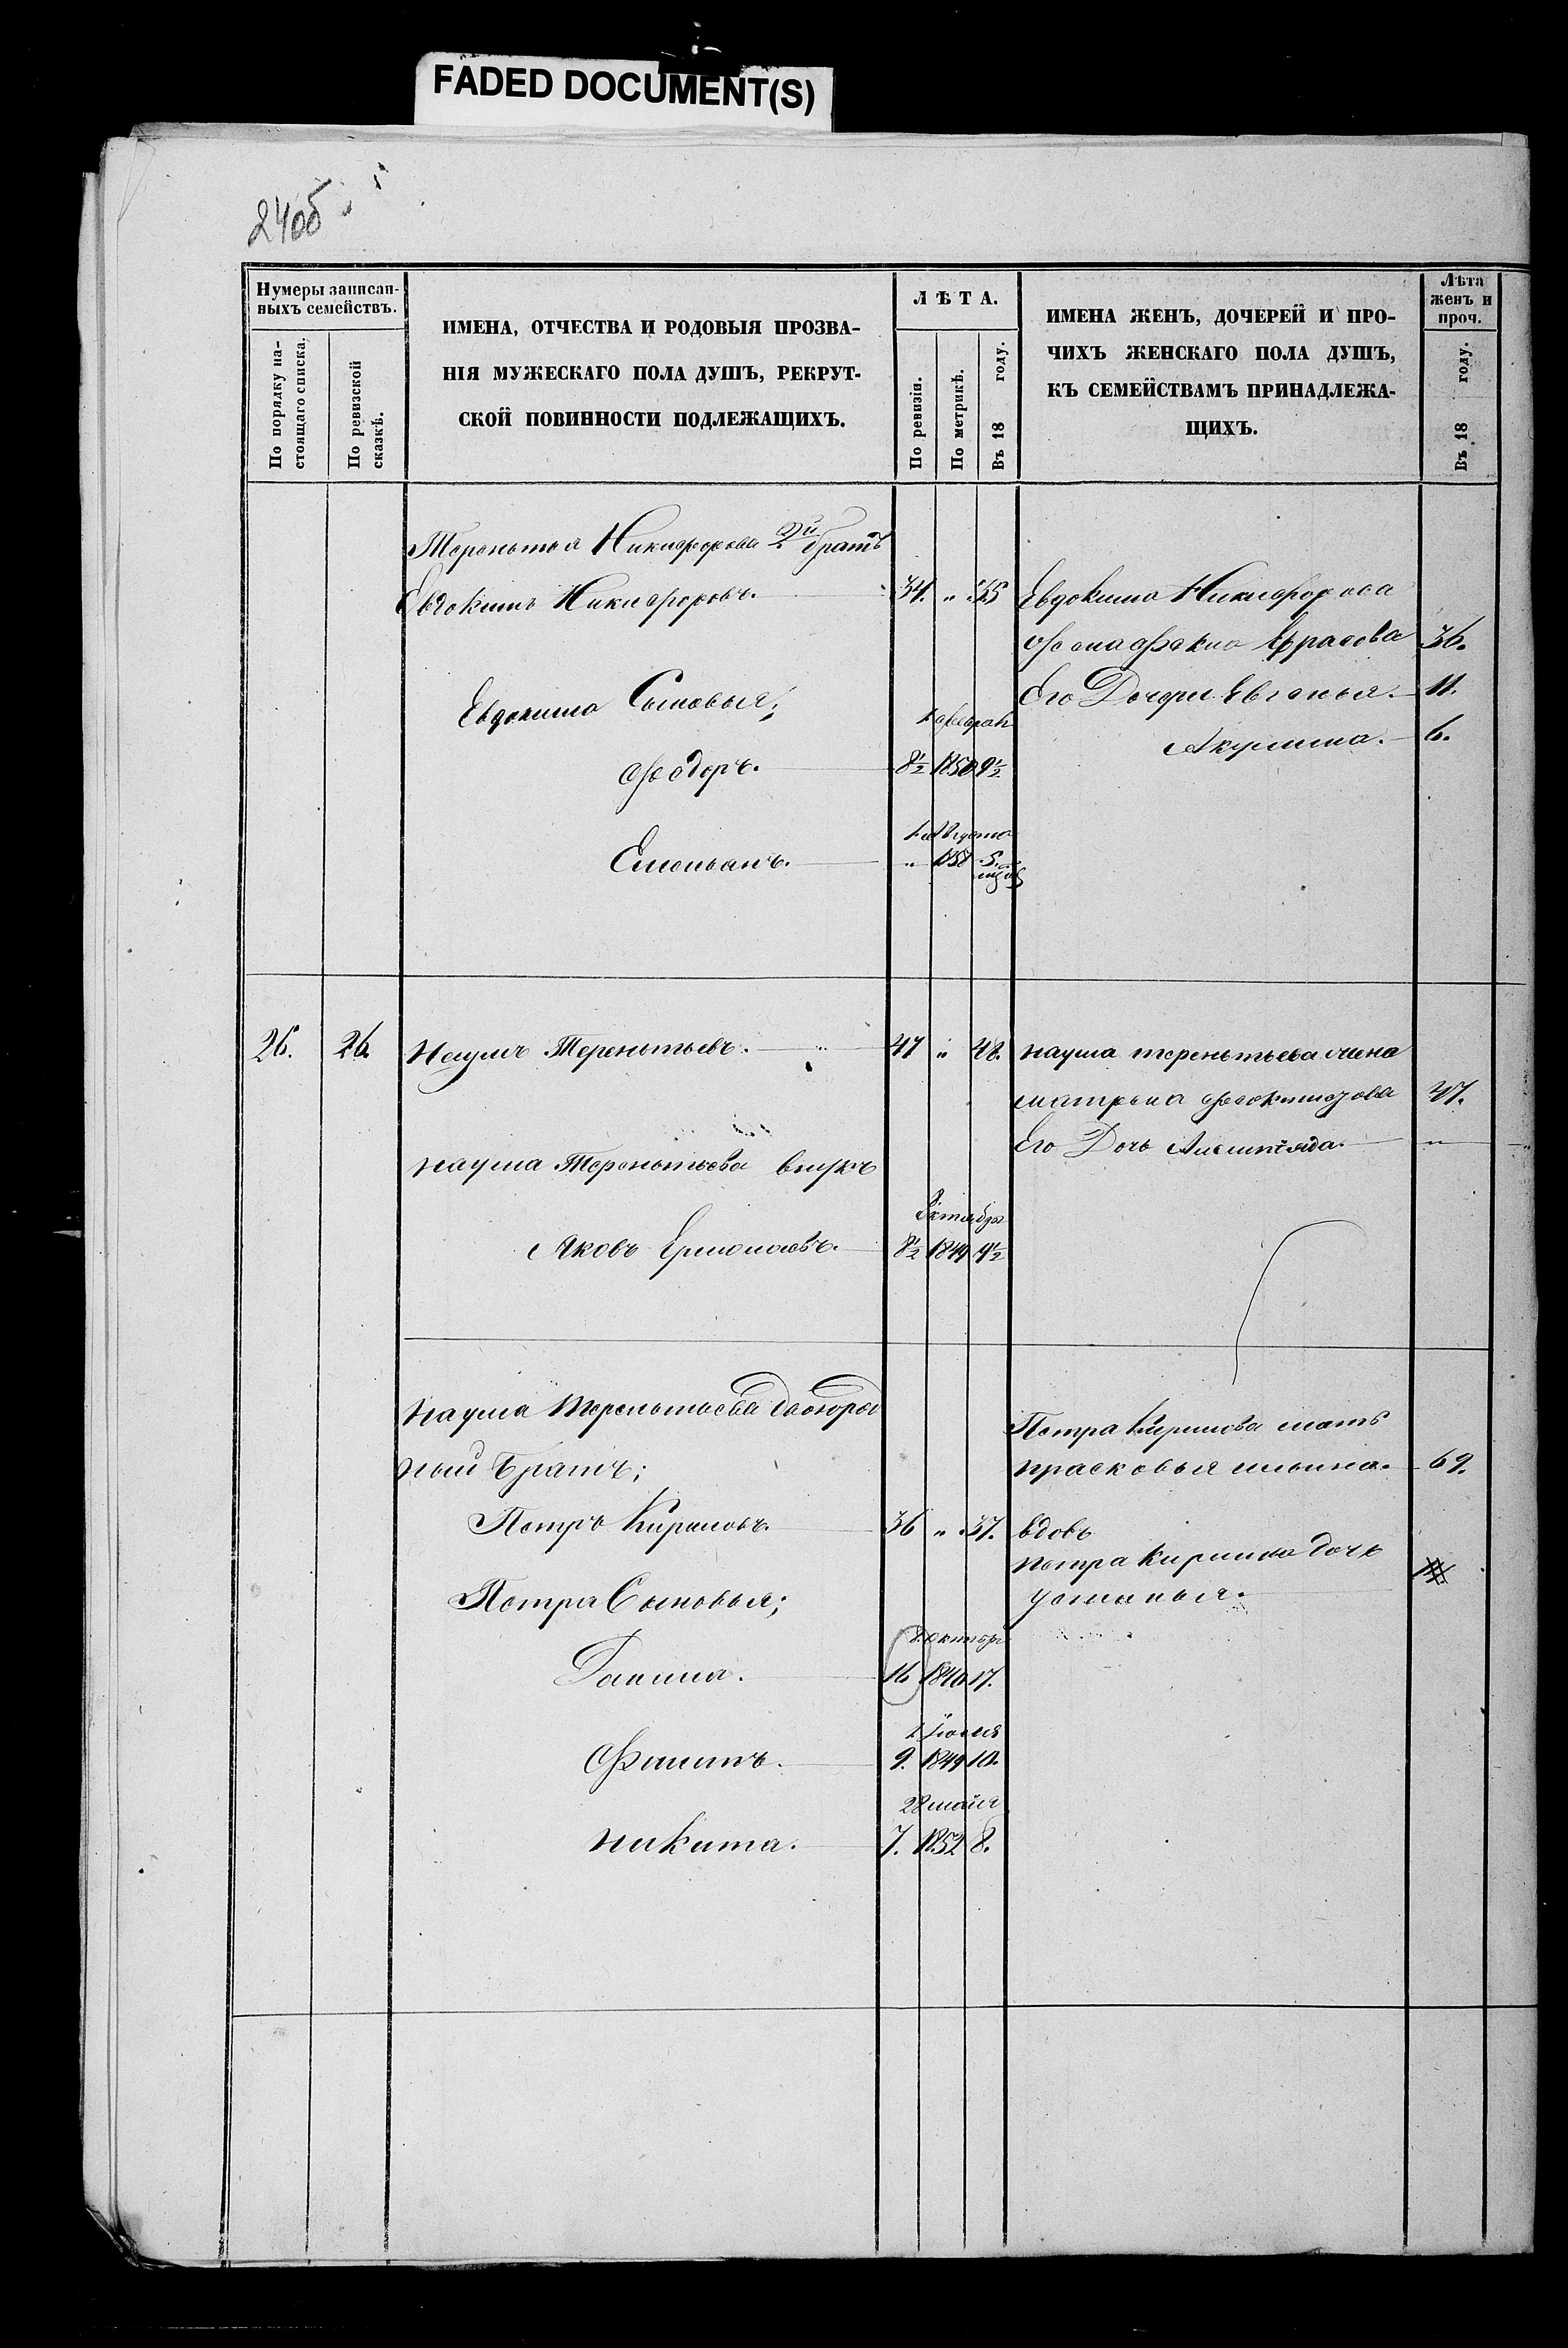 FADED DOCUMENT(S)
240об
Нумеры записан-
ныхъ семействъ.
По порядку на-
стоящаго списка.
По ревизской
сказкѣ.
ИМЕНА, ОТЧЕСТВА И РОДОВЫЯ ПРОЗВА-
НІЯ МУЖЕСКАГО ПОЛА ДУШЪ, РЕКРУТ-
СКОЙ ПОВИННОСТИ ПОДЛЕЖАЩИХЪ.
ЛѢТА.
По ревизіи.
По метрикѣ.
Въ 18 году.
ИМЕНА ЖЕНЪ, ДОЧЕРЕЙ И ПРО-
ЧИХЪ ЖЕНСКАГО ПОЛА ДУШЪ,
КЪ СЕМЕЙСТВАМЪ ПРИНАДЛЕЖА-
ЩИХЪ.
Лѣта
женъ и
проч.
Въ 18 году.
Терентья Никифорова 2й братъ
Евдокимъ Никифоровъ. 34. " 35
Евдокима Никифорова
36.
Его Дочери Евгенья. 11.
Акулина. 6.
Евдокима Сыновья;
1 феврал
Федоръ. 8½ 1850 9½
Августа
Емельянъ. " 1858 5.
26. 26. Наумъ Терентьевъ. 47 " 48.
наума терентьева жена
матрена 47.
Его Дочь "
наума Терентьева внукъ
Октября
Яковъ Ермолаевъ. 8½ 1849 9½
Наума Терентьева двоюрод
ный братъ;
Петръ Кириловъ. 36 " 37.
Петра Кирилова мать
прасковья ильина. 69.
вдовъ
петра Кирилова дочь
устинья.
Петра Сыновья;
октябр
Данила. 16 1840 17.
1 Іюля
Филипъ. 9. 1849 10.
28 майя
никита. 7. 1852 8.